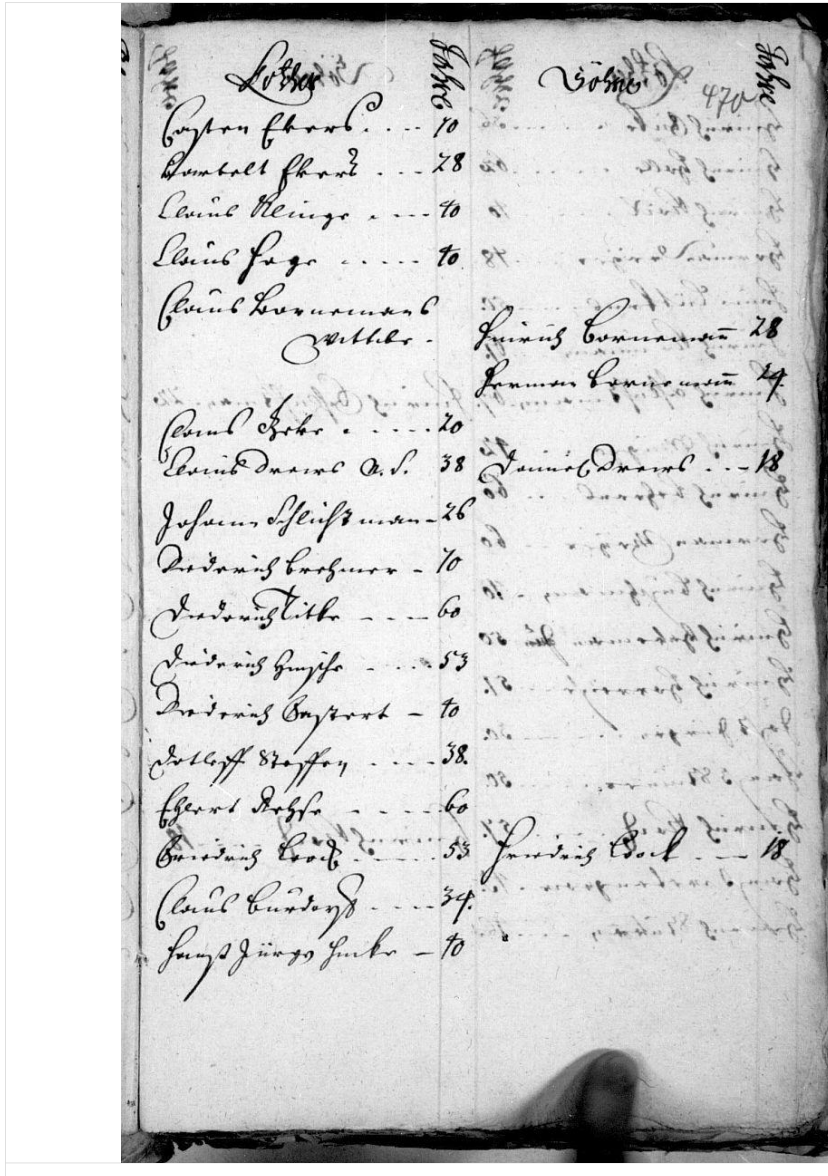 Jahre Söhne Jahre
470
Casten Ekers 40
Bartelt Ekers 28
Claus Klinge 40
Claus Hage 40
Claus Bornemans
Wittibe Hinrich Bornemann 28
Herman Bornemann 24
Claus 20
Claus Drews 38 Daniel Drews 18
Johann Schlichtman 26
Diederich Brehmer 40
Diederich Titke 60
Diederich Hinsche 53
Diederich Gastert 40
Detleff Steffen 38
Ehlert Rehse 60
Friedrich Bock 53 Friedrich Bock 18
Claus 34
Hanß Jürgen 40